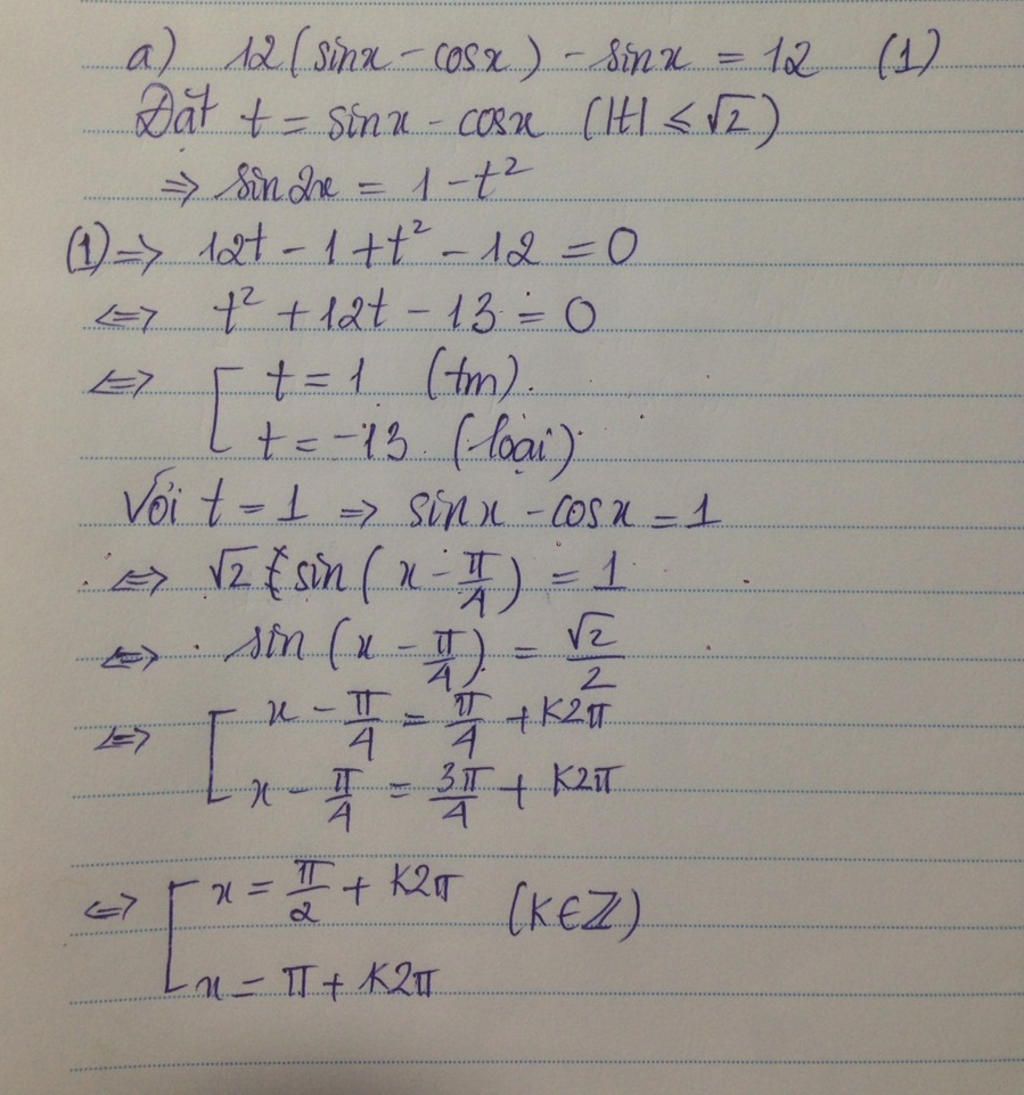 a) 12(sinx - cosx) - sinx = 12 (1)
Đặt t = sinx - cosx (|t| ≤ √2)
⇒ sin2x = 1 - t²
(1) ⇒ 12t - 1 + t² - 12 = 0
⇔ t² + 12t - 13 = 0
⇔ [ t = 1 (tm).
t = -13 (loại)
Với t = 1 ⇒ sinx - cosx = 1
⇔ √2 sin(x - π/4) = 1
⇔ sin(x - π/4) = √2/2
⇔ [ x - π/4 = π/4 + k2π
x - π/4 = 3π/4 + k2π
⇔ [ x = π/2 + k2π (k∈ℤ)
x = π + k2π